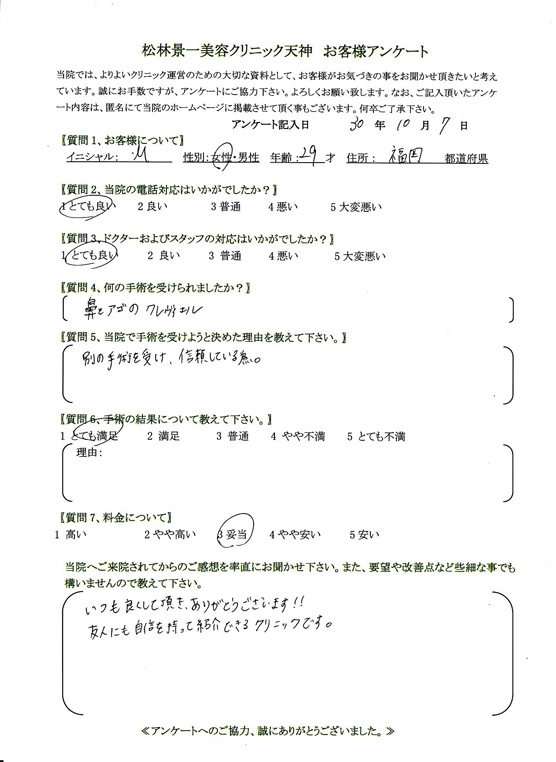 松林景一美容クリニック天神　お客様アンケート
当院では、よりよいクリニック運営のための大切な資料として、お客様がお気づきの事をお聞かせ頂きたいと考え
ています。誠にお手数ですが、アンケートにご協力下さい。よろしくお願い致します。なお、ご記入頂いたアンケ
ート内容は、匿名にて当院のホームページに掲載させて頂く事もございます。何卒ご了承下さい。
アンケート記入日　30 年 10 月 7 日
〖質問 1、お客様について〗
イニシャル： M　性別：女性・男性　年齢：29 才　住所： 福岡　都道府県
〖質問 2、当院の電話対応はいかがでしたか？〗
1 とても良い　2 良い　3 普通　4 悪い　5 大変悪い
〖質問 3、ドクターおよびスタッフの対応はいかがでしたか？〗
1 とても良い　2 良い　3 普通　4 悪い　5 大変悪い
〖質問 4、何の手術を受けられましたか？〗
鼻とアゴの クレヴィエル
〖質問 5、当院で手術を受けようと決めた理由を教えて下さい。〗
別の手術を受け、信頼している為。
〖質問 6、手術の結果について教えて下さい。〗
1 とても満足　2 満足　3 普通　4 やや不満　5 とても不満
理由：
〖質問 7、料金について〗
1 高い　2 やや高い　3 妥当　4 やや安い　5 安い
当院へご来院されてからのご感想を率直にお聞かせ下さい。また、要望や改善点など些細な事でも
構いませんので教えて下さい。
いつも良くして頂き、ありがとうございます!!
友人にも自信を持って紹介できるクリニックです。
≪アンケートへのご協力、誠にありがとうございました。≫